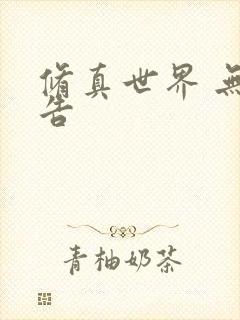 脩真世界 無
告
青柚奶茶